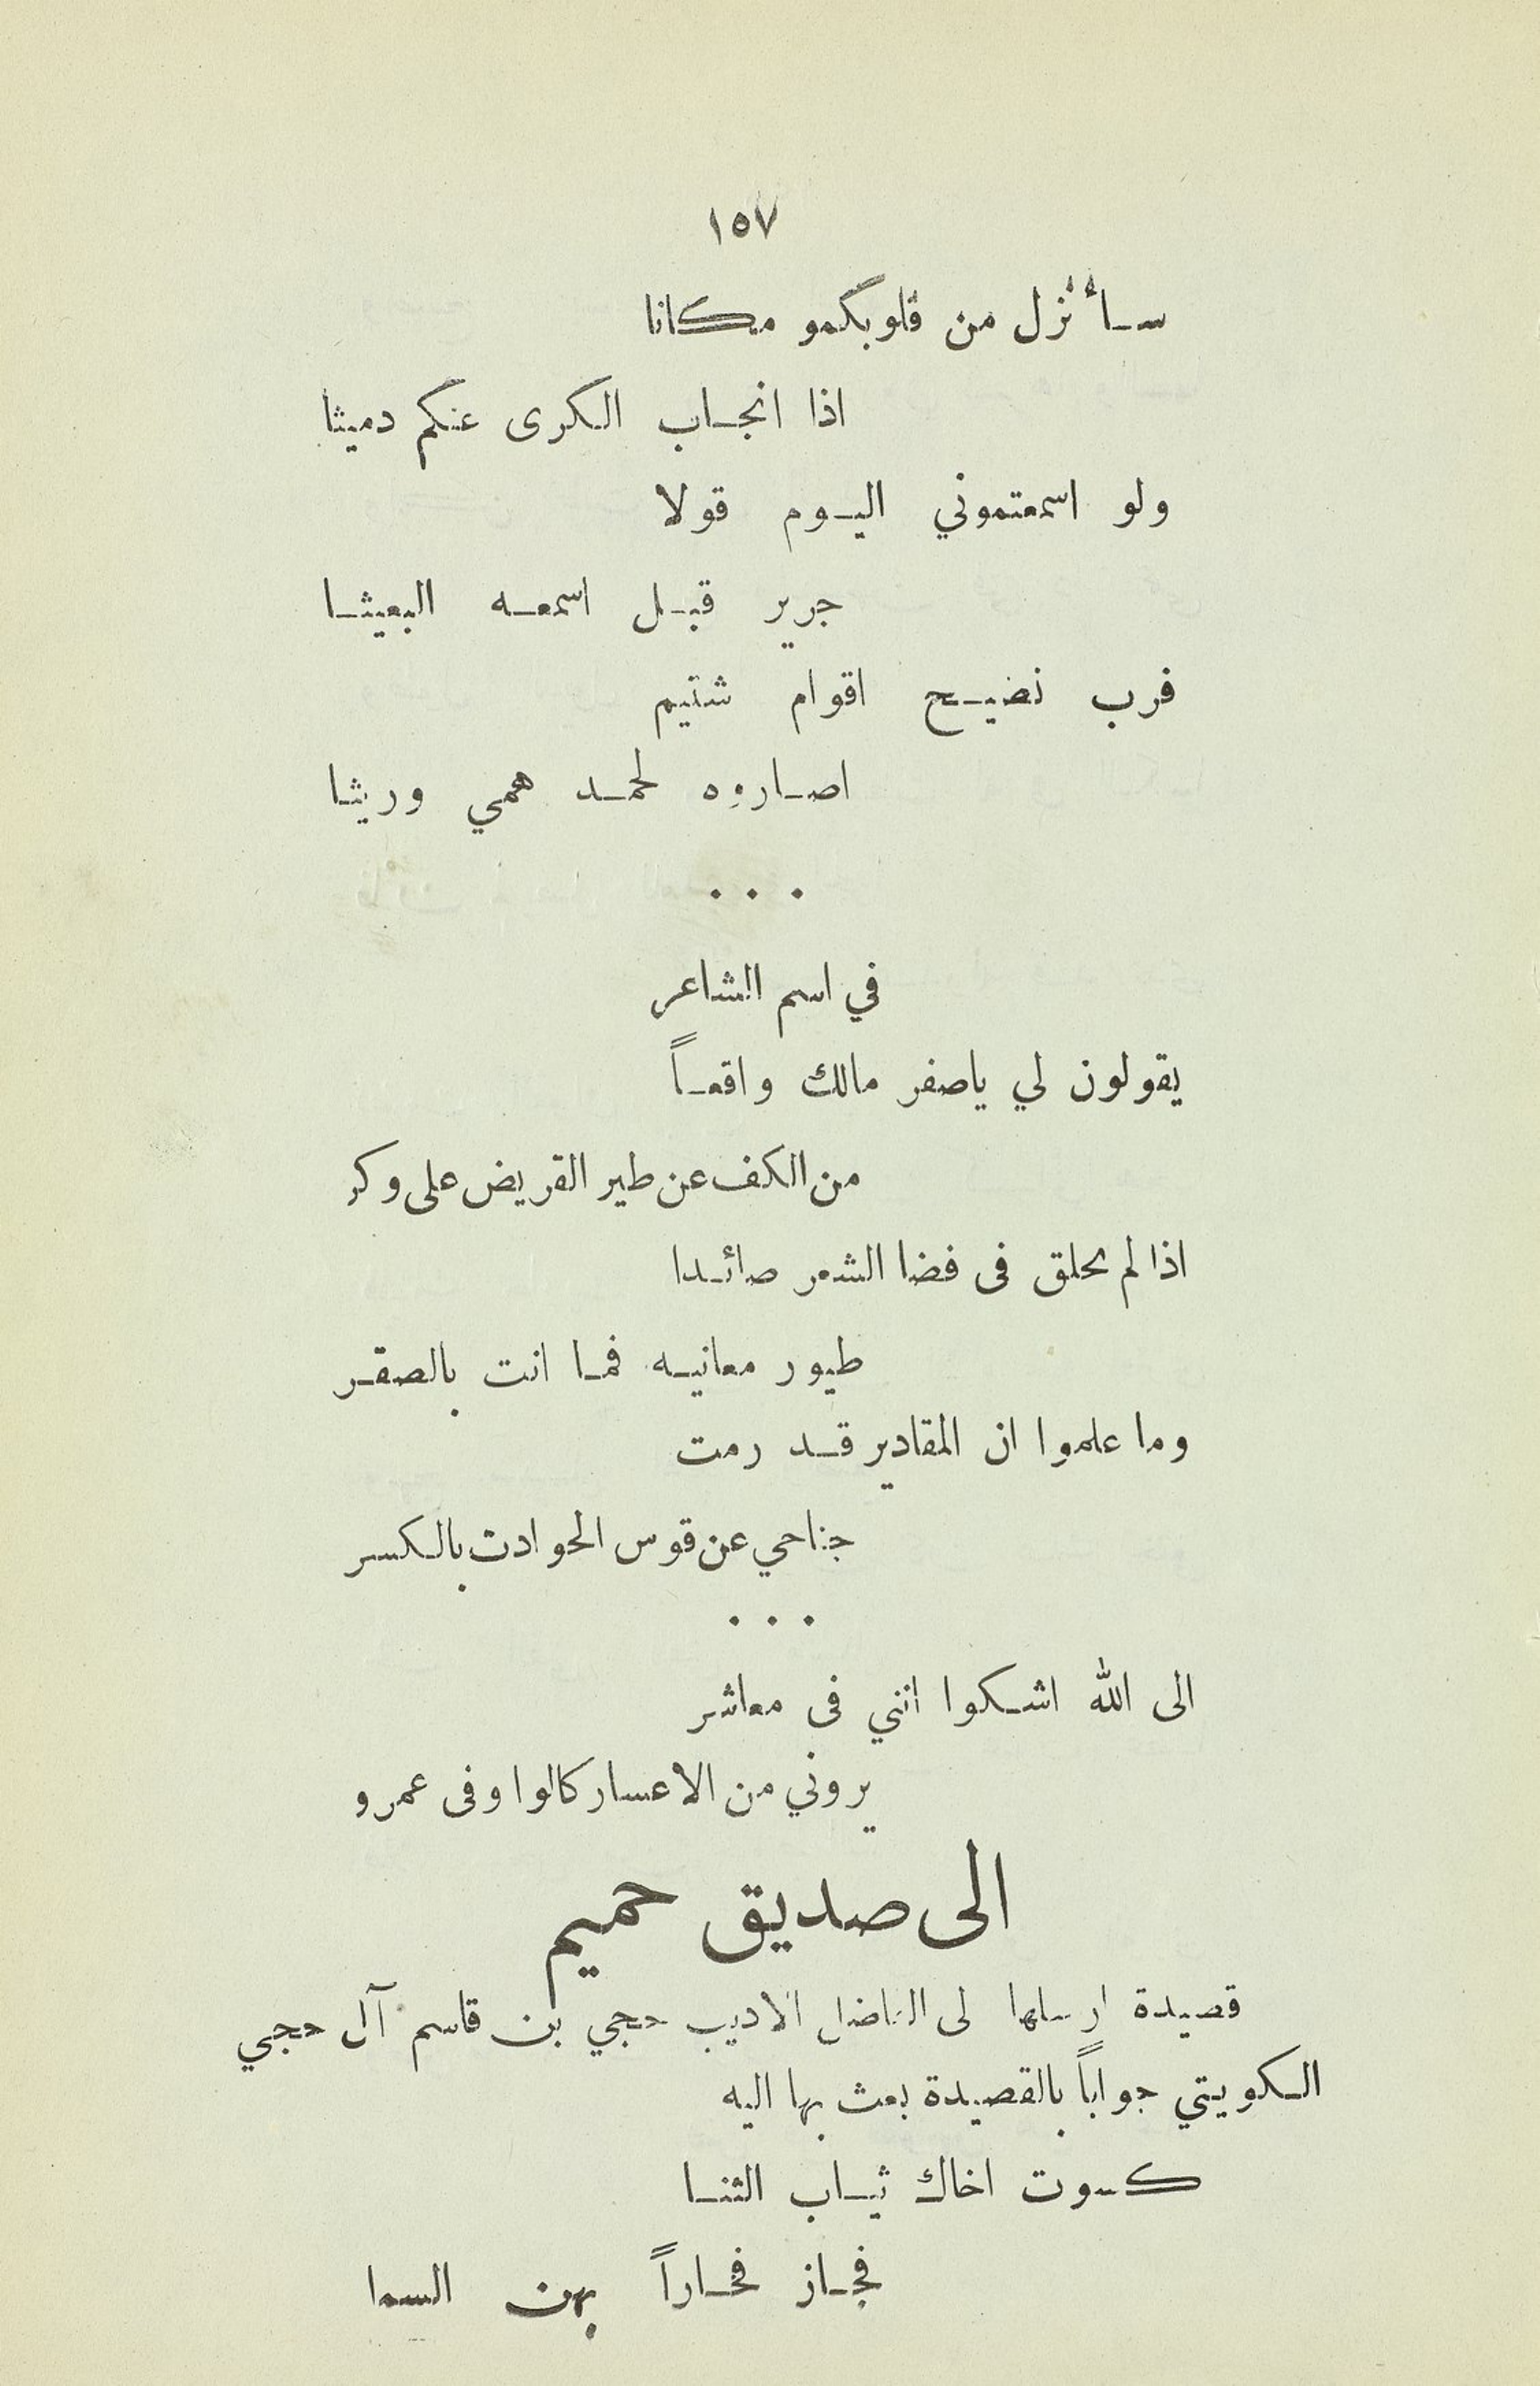 ١٥٧
سأنزل من قلوبكمو مكانا
اذا انجاب الكرى عنكم دميثا
ولو اسمعتموني اليوم قولا
جرير قبل اسمعه البعيثا
فرب نضيح اقوام شتيم
اصاروه لحمد همي وريثا
. . .
في اسم الشاعر
يقولون لي ياصفر مالك واقعاً
من الكف عن طير القريض على وكر
اذا لم تحلق فى فضا الشعر صائدا
طيور معانيه فما انت بالصقر
وما علموا ان المقادير قد رمت
جناحي عن قوس الحوادث بالكسر
. . .
الى الله اشكوا انني فى معاشر
يروني من الاعسار كالوا وفى عمرو
الى صديق حميم
قصيدة ارسلها لى الفاضل الاديب حجي بن قاسم آل حجي
الكويتي جواباً بالقصيدة بعث بها اليه
كسوت اخاك ثياب الثنا
فجاز فخاراً بهن السما